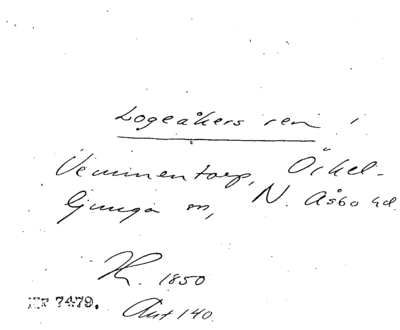 Logeåkers ren i
Vemmentorp, Örkel-
ljunga sn, N. Åsbo hd.
1850
7479.
Ant 140